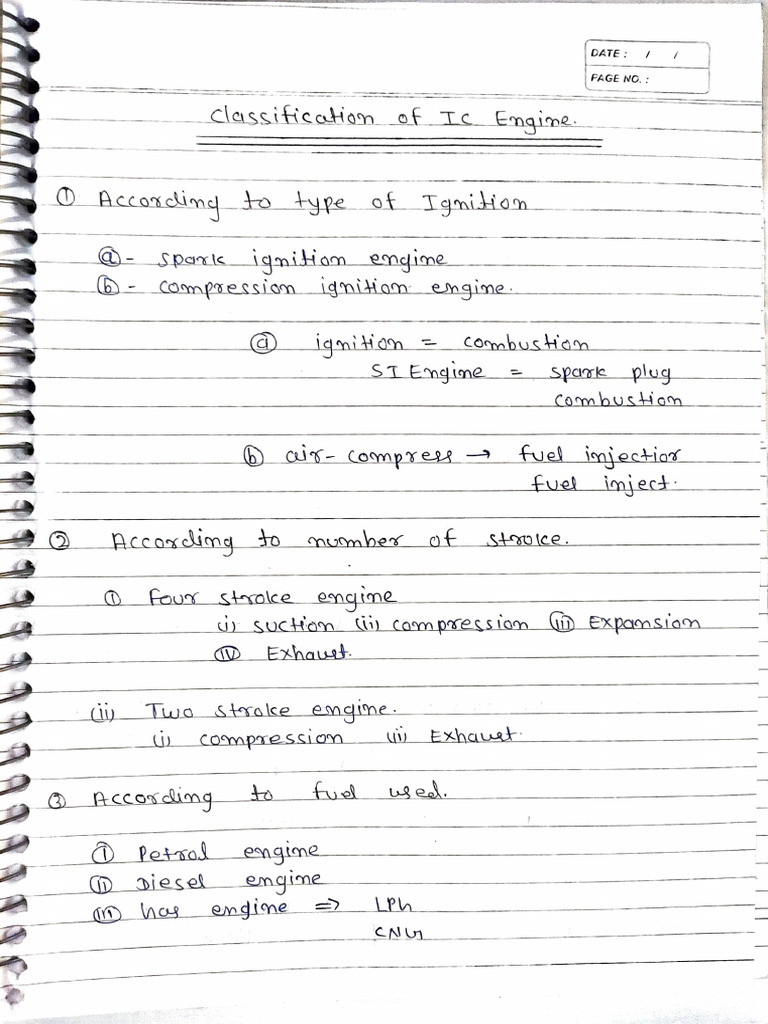 DATE: / /
PAGE NO.:
Classification of IC Engine.
① According to type of Ignition
ⓐ- spark ignition engine
ⓑ- compression ignition engine.
ⓐ ignition = combustion
SI Engine = spark plug
combustion
ⓑ air-compress → fuel injectior
fuel inject.
② According to number of stroke.
① four stroke engine
(i) suction (ii) compression ⓘⓘⓘ Expansion
ⓘⓥ Exhaust.
(ii) Two stroke engine.
(i) compression (ii) Exhaust.
③ According to fuel used.
ⓘ Petrol engine
ⓘⓘ Diesel engine
ⓘⓘⓘ Gas engine ⇒ LPG
CNG